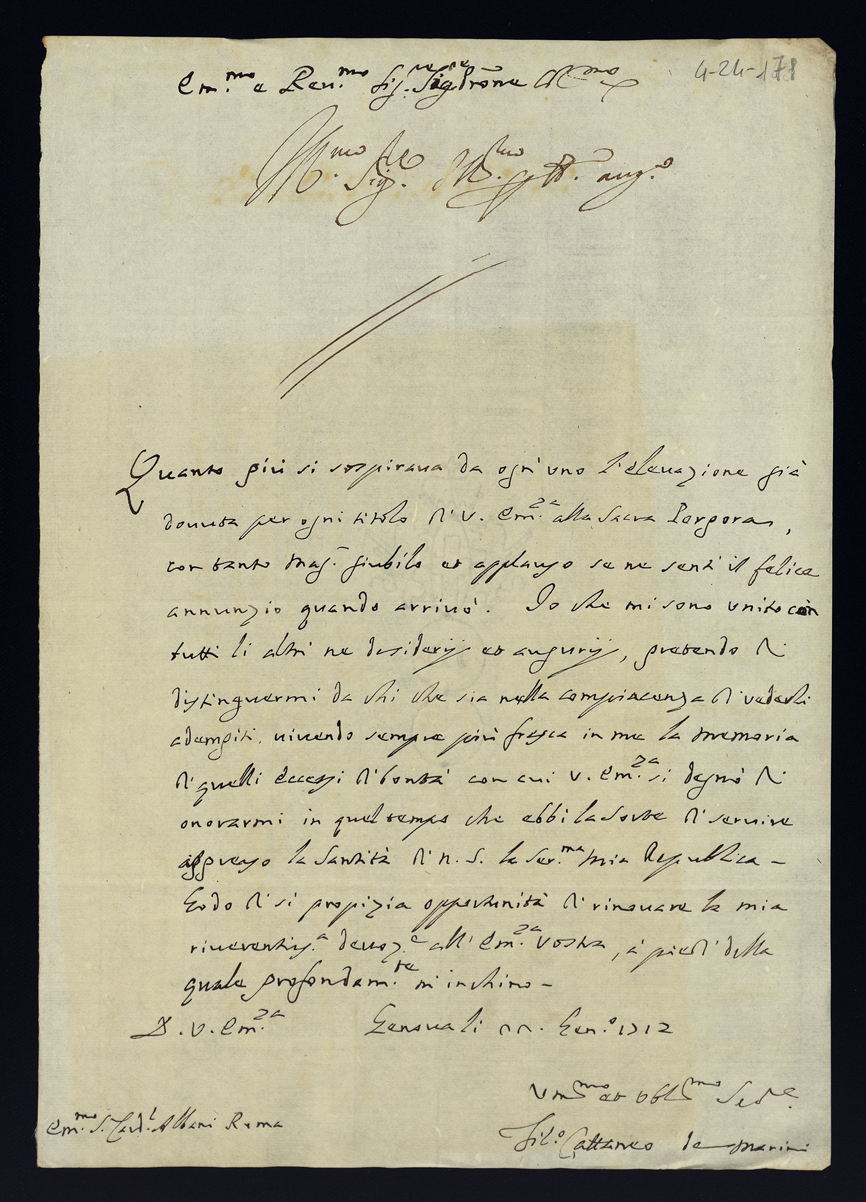 4-24-171
Em.mo e Reu.mo Sig.re Sig.re Prône Col.mo
Quanto più si sospiraua da ogn'uno l'eleuazione già
douuta per ogni titolo di V. Em.za alla Sacra Porpora,
con tanto mag.r giubilo et applauso se ne sentì il felice
annunzio quando arriuò. Io che mi sono unito con
tutti li altri ne desiderij et augurij, pretendo di
distinguermi da chi che sia nella compiacenza di uederli
adempiti, uiuendo sempre più fresca in me la memoria
di quelli eccessi di bontà con cui V. Em.za si degnò di
onorarmi in quel tempo che ebbi la sorte di seruire
appresso la Santità di N. S. la Ser.ma mia Republica -
Godo di sì propizia opportunità di rinouare la mia
riuerentiss.a deuoz.e all' Em.za Vostra, à piedi della
quale profondam.te m'inchino -
D. V. Em.za Genoua li Gen.o 1712
Um.mo et Obl.mo Se.
Em.mo S. Card.l Albani Roma
Fil.o Cattaneo de Marini